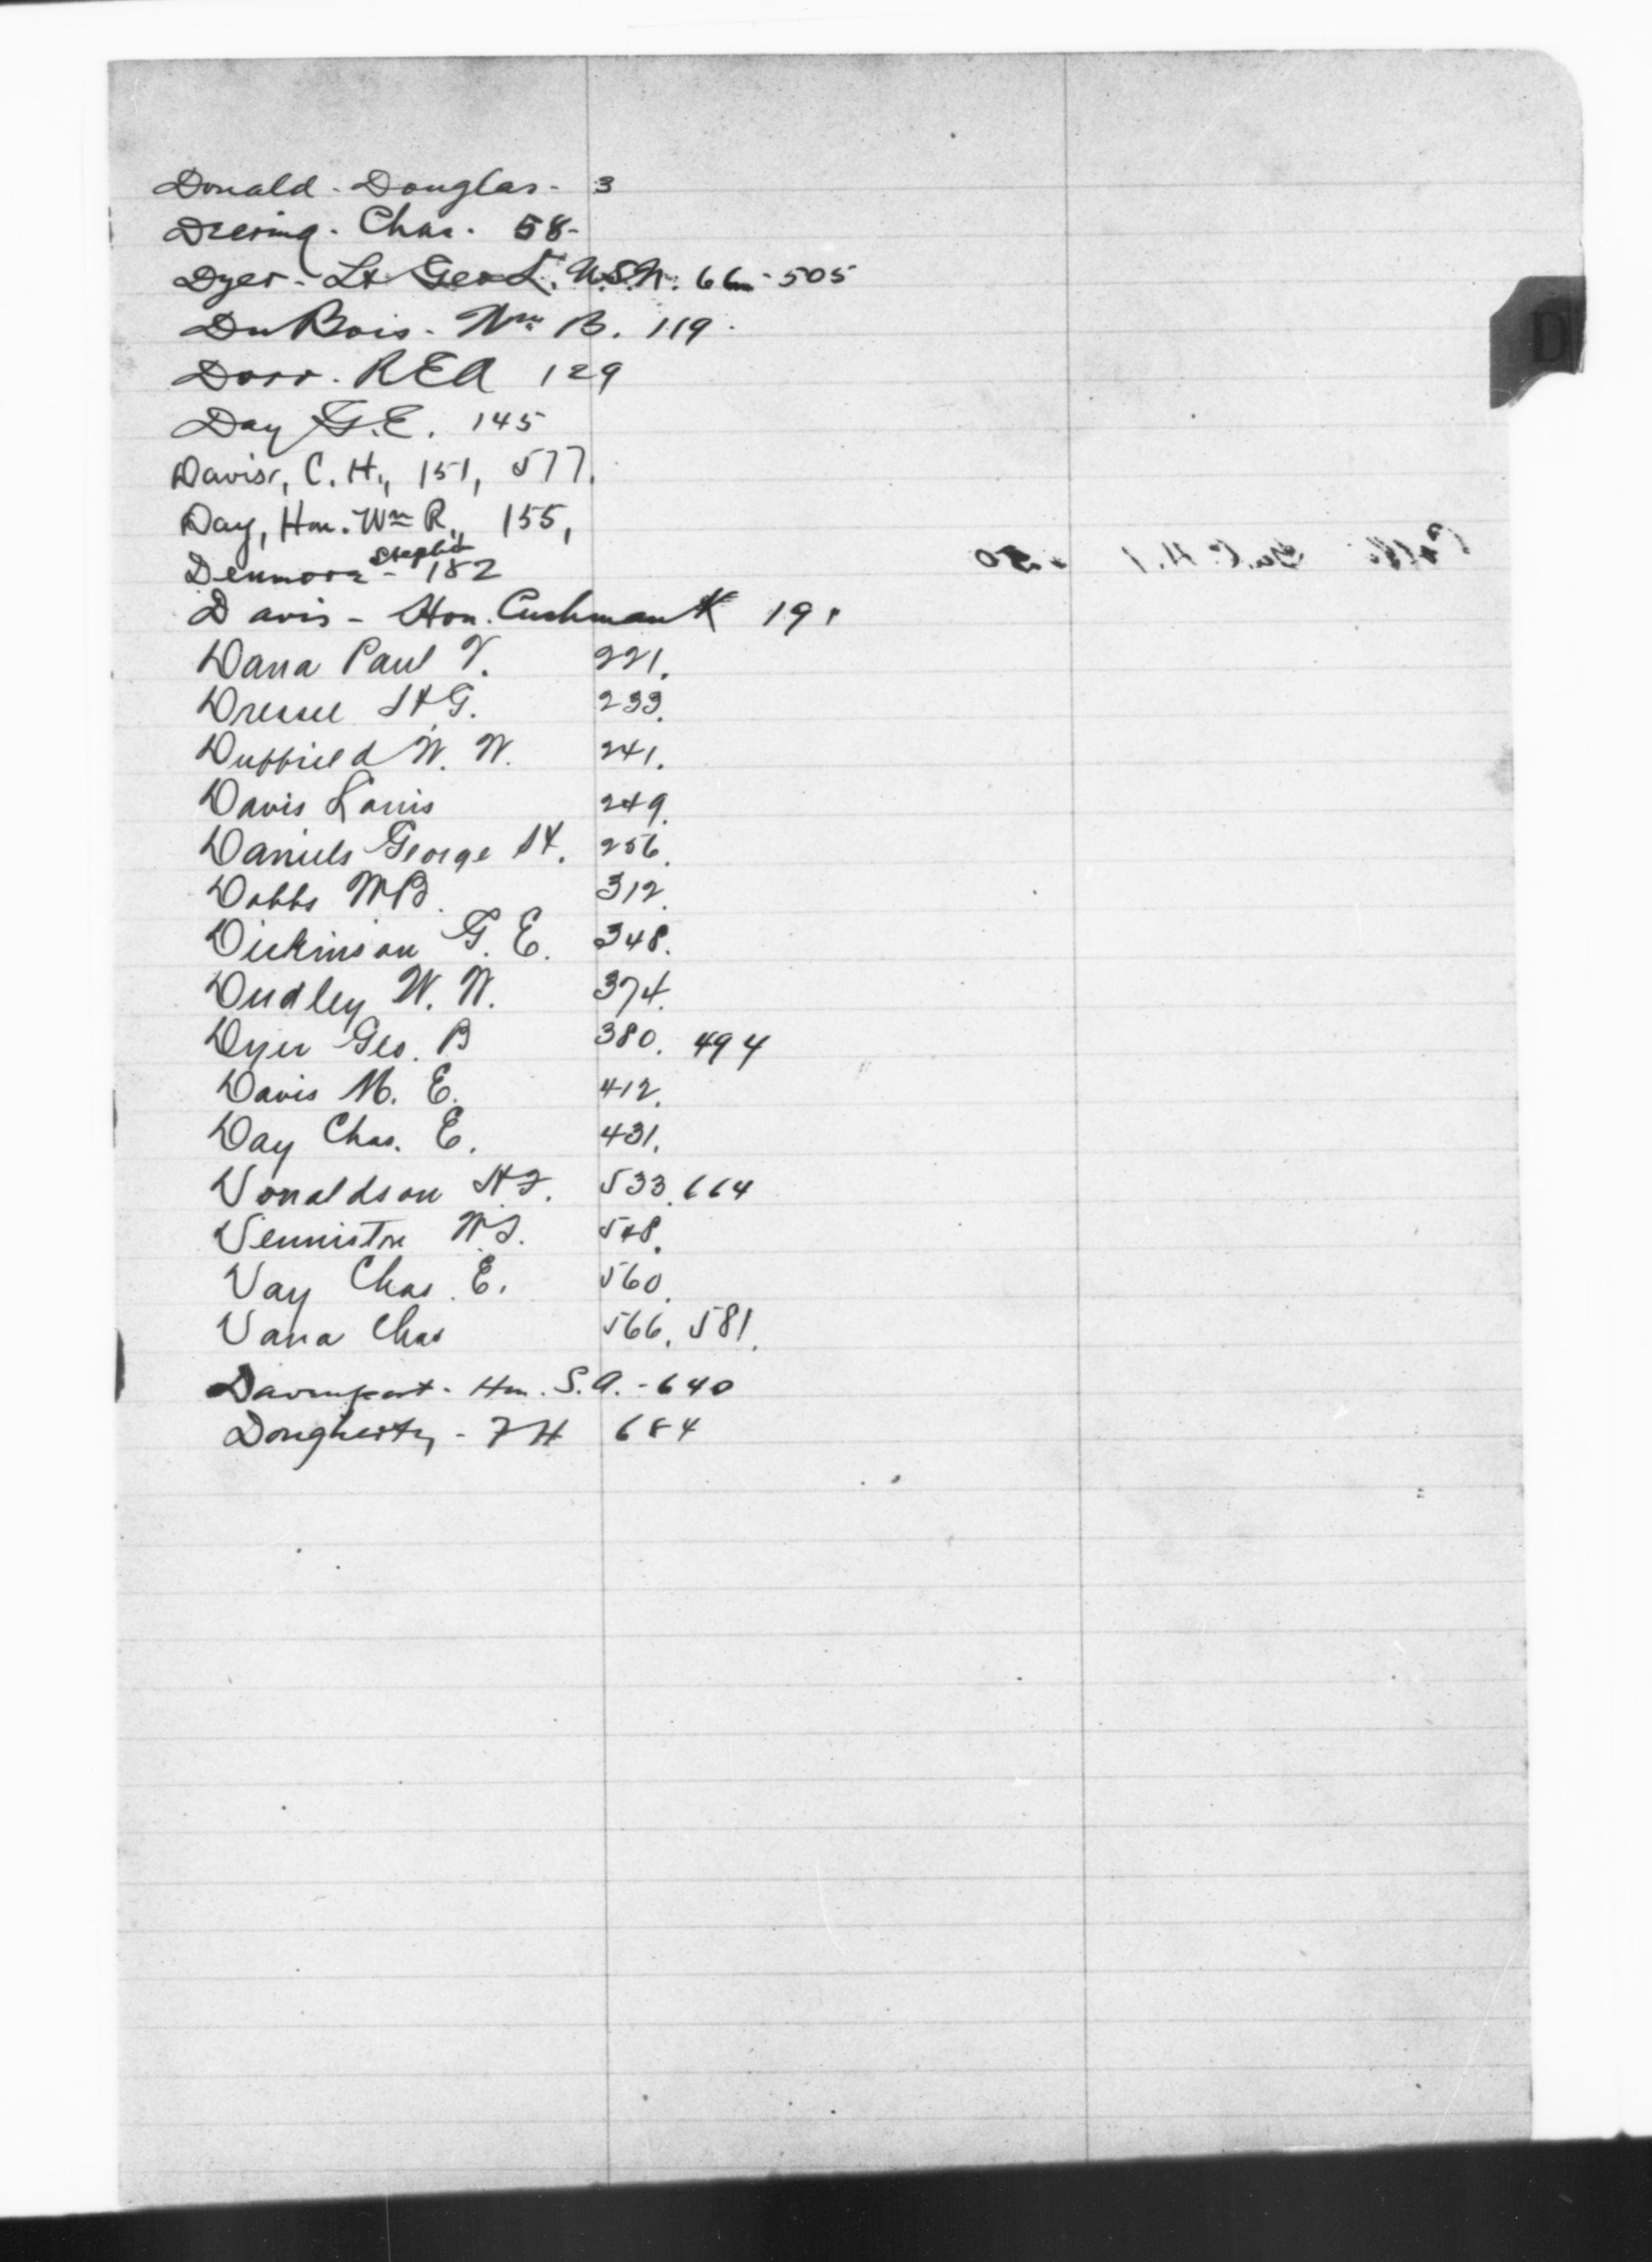 Donald - Douglas - 3
Deering - Chas. 58-
Dyer - Lt Geo L. U.S.N. 66 - 505
Du Bois - Wm B. 119.
Dorr. REA 129
Day G.E. 145
Davis, C. H., 151, 577.
Day, Hon. Wm R., 155,
Denmore - Stephen 182
Davis - Hon. Cushman K 191
Dana Paul V. 221.
H.G. 233.
Duffield W. W. 241.
Davis Louis 249.
Daniels George H. 256.
Dobbs WB. 312.
Dickinson G. E. 348.
Dudley W. W. 374.
Dyer Geo. B 380. 494
Davis M. E. 412.
Day Chas. E. 431.
Donaldson H.F. 533. 664
Denniston 548.
Day Chas. E. 560.
Dana Chas 566. 581.
Davenport - Hon. S.A. - 640
Dougherty - FH 684
D